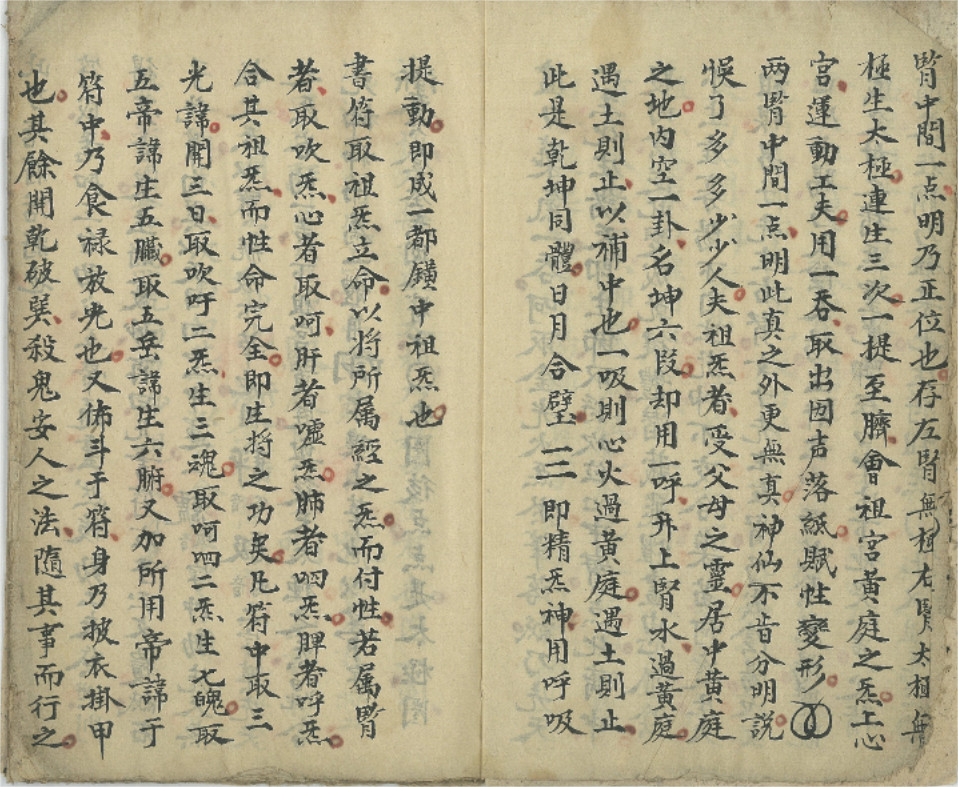 腎中間一点明乃正位也存左腎無極右腎太極無
極生太極連生三次一提至臍會祖宮黃庭之炁上心
宮運動工夫用一吞取出囙声落紙賦性變形
两腎中間一点明此真之外更無真神仙不肯分明説
悮了多多少少人夫祖炁者受父母之靈居中黃庭
之地内空一卦名坤六段却用一呼升上腎水過黃庭
遇土則止以補中也一吸則心火過黃庭遇土則止
此是乾坤同體日月合璧三即精炁神用呼吸
提動即成一都鎮中祖炁也
書符取祖炁立命以将所属經之炁而付性若属腎
者取吹炁心者取呵肝者噓炁肺者呬炁脾者呼炁
合其祖炁而性命完全即生将之功矣凡符中取三
光諱開三日取吹吁二炁生三魂取呵呬二炁生七魄取
五帝諱生五臟取五岳諱生六腑又加所用帝諱于
符中乃食禄放光也又佈斗于符身乃披衣掛甲
也其餘開乾破巽殺鬼安人之法隨其事而行之